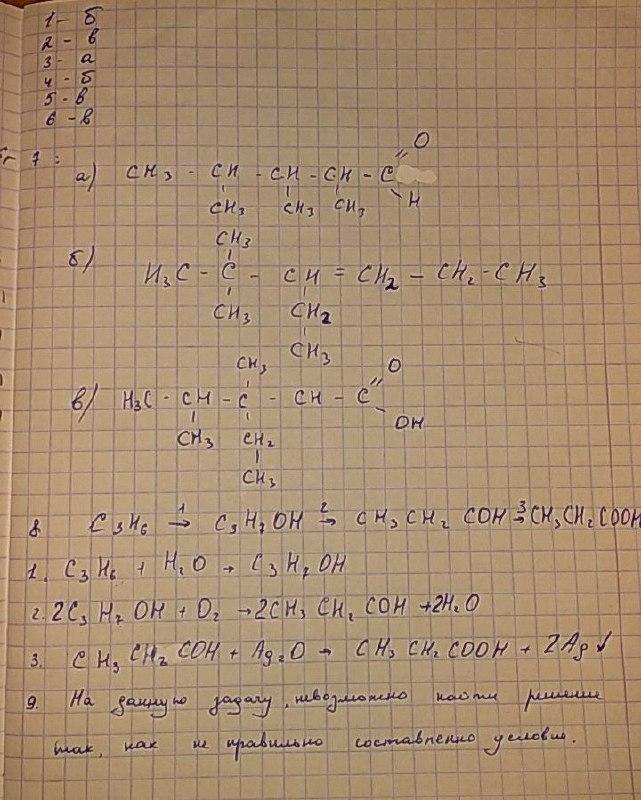 1- б
2 - в
3 - а
4 - б
5 - в
6 - в
7:
а) CH3 - CH - CH - CH - C
O
H
CH3 CH3 CH3
CH3
б) H3C - C - CH = CH2 - CH2 - CH3
CH3 CH2
CH3
CH3
в) H3C - CH - C - CH - C
O
OH
CH3 CH2
CH3
8. C3H6 →1 C3H7OH →2 CH3CH2COH →3 CH3CH2COOH
1. C3H6 + H2O → C3H7OH
2. 2C3H7OH + O2 → 2CH3CH2COH + 2H2O
3. CH3CH2COH + Ag2O → CH3CH2COOH + 2Ag↓
9. На данную задачу, невозможно найти решение
так, как не правильно составленно условие.